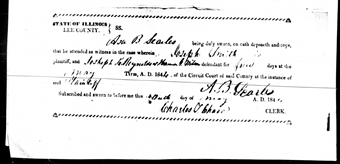 STATE OF ILLINOIS
LEE COUNTY. } SS.
Asa B Searles being duly sworn, on oath deposeth and says,
that he attended as witness in the case wherein Joseph Smith is
plaintiff, and Joseph H Reynolds & Harmon T Wilson defendant for four days at the
May Term, A. D. 184 of the Circuit Court of said County at the instance of
said Plaintiff
A. B. Searles
Subscribed and sworn to before me this day of May A. D. 184
Charles T Chase CLERK.